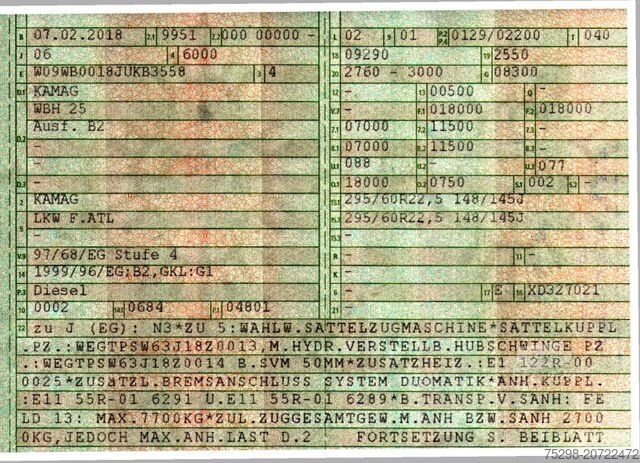 B 07.02.2018 2.1 9951 2.2 000 00000 -
J 06 4 6000
E W09WB0018JUKB3558 3 4
D.1 KAMAG
WBH 25
D.2 Ausf. B2
-
-
D.3 -
2 KAMAG
5 LKW F.ATL
-
V.9 97/68/EG Stufe 4
14 1999/96/EG;B2,GKL:G1
P.3 Diesel
10 0002 14.1 0684 P.1 04801
L 02 9 01 P.2 P.4 0129/02200 T 040
18 09290 19 2550
20 2760 - 3000 G 08300
12 - 13 00500 Q -
V.7 - F.1 018000 F.2 018000
7.1 07000 7.2 11500 7.3 -
8.1 07000 8.2 11500 8.3 -
U.1 088 U.2 - U.3 077
O.1 18000 O.2 0750 S.1 002 S.2 -
15.1 295/60R22,5 148/145J
15.2 295/60R22,5 148/145J
15.3 -
R - 11 -
K -
6 - 17 E 16 XD327021
21 -
22 zu J (EG): N3*ZU 5:WAHLW.SATTELZUGMASCHINE*SATTELKUPPL
.PZ.:WEGTPSW63J18Z0013,M.HYDR.VERSTELLB.HUBSCHWINGE PZ
.:WEGTPSW63J18Z0014 B.SVM 50MM*ZUSATZHEIZ.:E1 122R 00
0025*ZUSÄTZL.BREMSANSCHLUSS SYSTEM DUOMATIK*ANH.KUPPL.
:E11 55R-01 6291 U.E11 55R-01 6289*B.TRANSP.V.SANH: FE
LD 13: MAX.7700KG*ZUL.ZUGGESAMTGEW.M.ANH BZW.SANH 2700
0KG,JEDOCH MAX.ANH.LAST D.2 FORTSETZUNG S. BEIBLATT
75298-20722472